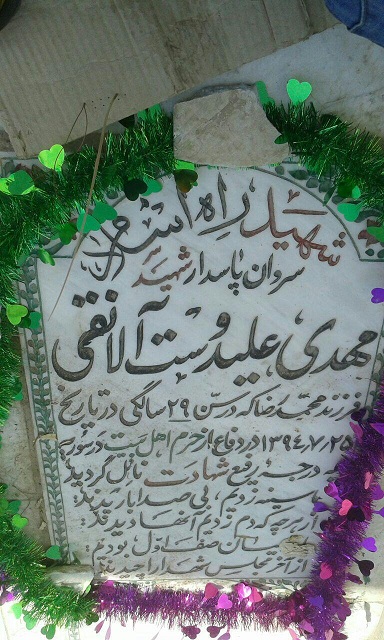 شهید راه اسلام
سروان پاسدار شهید
مهدی علیدوست آلانقی
فرزند محمدرضا که در سن ۲۹ سالگی در تاریخ
۱۳۹۴/۷/۲۵ در دفاع از حرم اهل بیت در سوریه
به درجه رفیع شهادت نائل گردید
سینه زدیم، بی صدا باریدند
از هر چه که دم زدیم آنها دیدند
صف اول بودیم
از آخر مجلس شهدا را چیدند